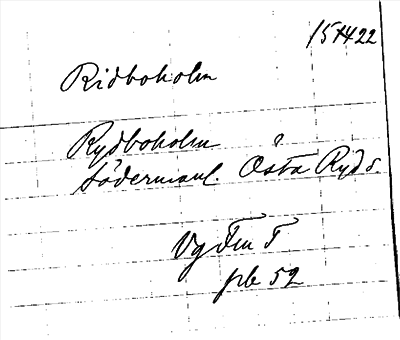 15/4 22
Ridboholm
Rydboholm
Södermanl Östa Ryd s.
Vg Fn T
pb 52